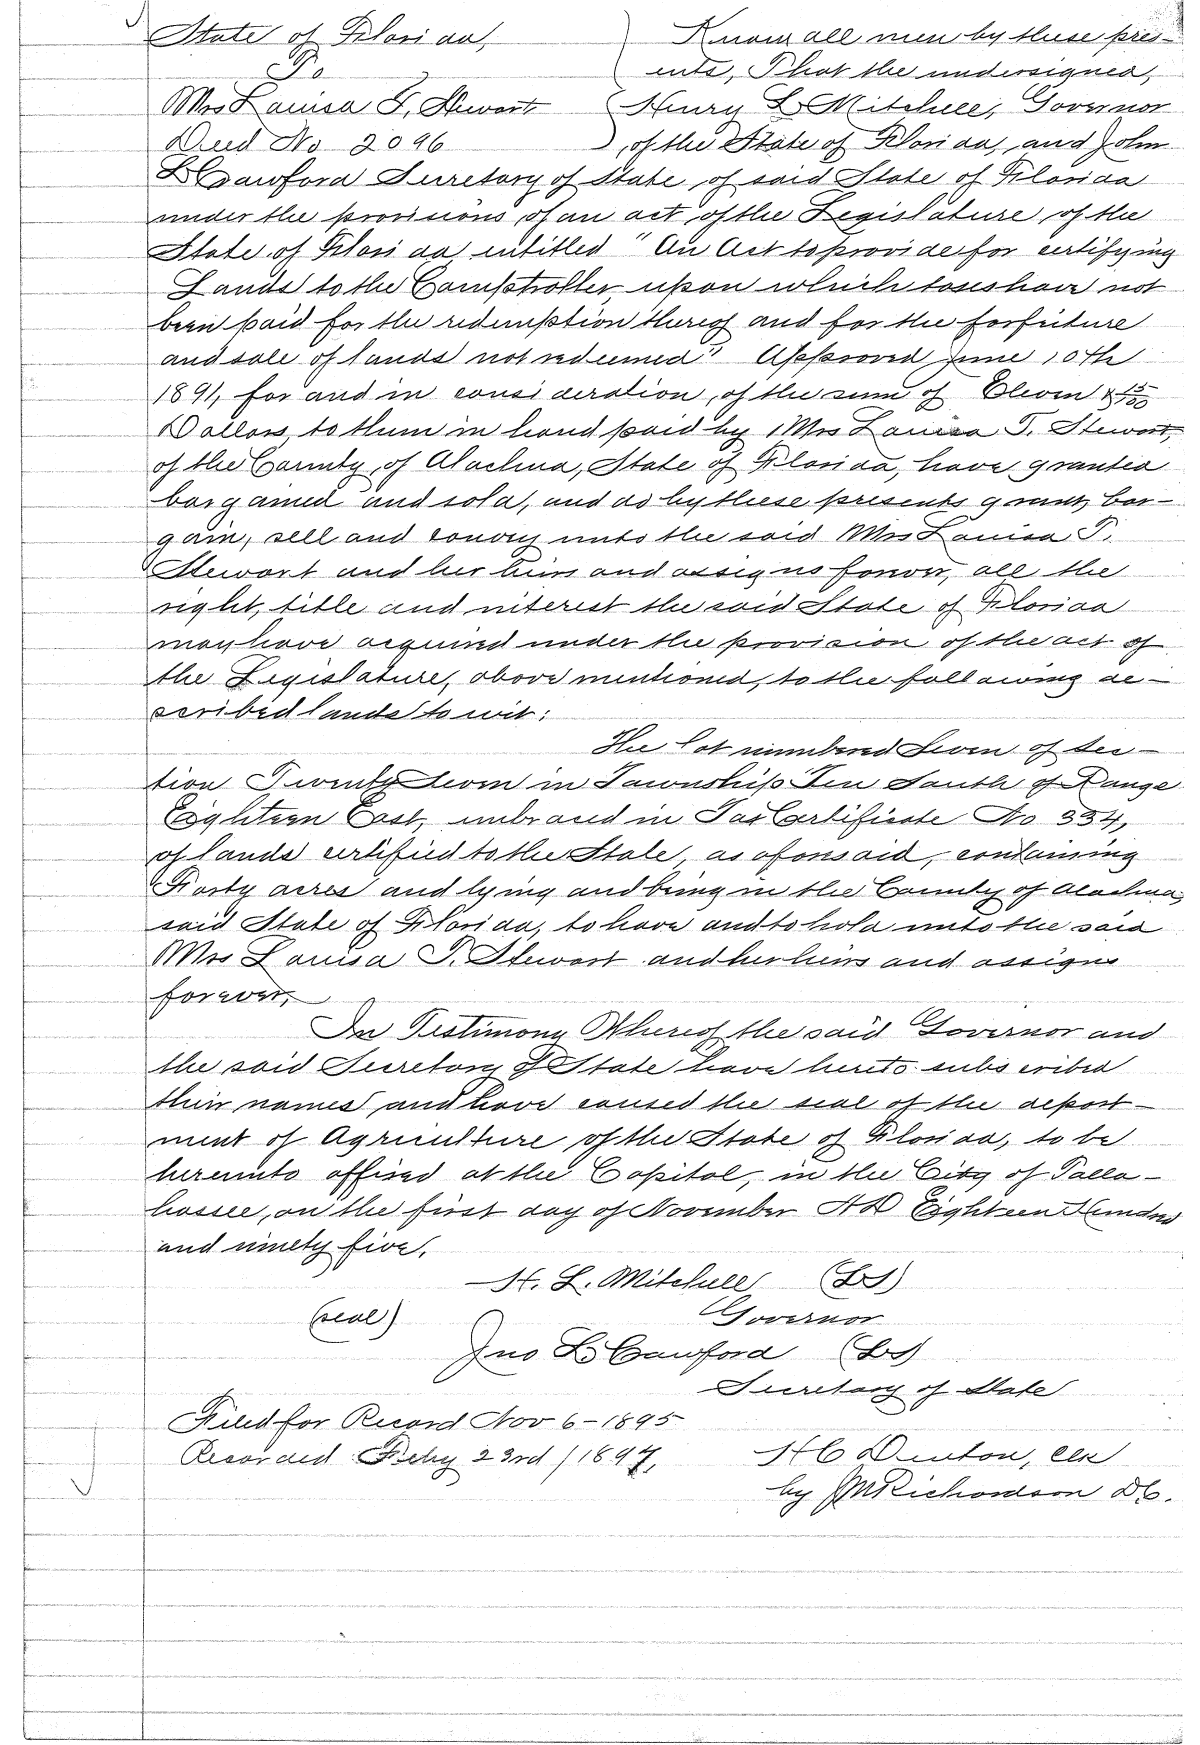 State of Florida, ) Know all men by these pres-
To ents, That the undersigned,
Mrs Louisa T. Stewart ( Henry L. Mitchell, Governor
Deed No 2096 ) of the State of Florida, and John
L Crawford Secretary of State of said State of Florida
under the provisions of an act of the Legislature of the
State of Florida entitled "An Act to provide for certifying
Lands to the Comptroller upon which taxes have not
been paid for the redemption thereof and for the forfeiture
and sale of lands not redeemed" Approved June 10th
1891, for and in consideration, of the sum of Eleven & 15/100
Dollars, to them in hand paid by Mrs Louisa T. Stewart,
of the County of Alachua, State of Florida, have granted
bargained and sold, and do by these presents grant, bar-
gain, sell and convey unto the said Mrs Louisa T.
Stewart and her heirs and assigns forever, all the
right, title and interest the said State of Florida
may have acquired under the provision of the act of
the Legislature, above mentioned, to the following de-
scribed lands to wit:
The Lot numbered Seven of Sec-
tion Twenty Seven in Township Ten South of Range
Eighteen East, embraced in Tax Certificate No 334,
of lands certified to the State, as aforesaid, containing
Forty acres and lying and being in the County of Alachua,
said State of Florida, to have and to hold unto the said
Mrs Louisa T. Stewart and her heirs and assigns
forever,
In Testimony Whereof the said Governor and
the said Secretary of State have hereto subscribed
their names and have caused the seal of the depart-
ment of Agriculture of the State of Florida, to be
hereunto affixed at the Capitol, in the City of Talla-
hassee, on the first day of November AD Eighteen Hundred
and ninety five.
H. L. Mitchell (LS)
(seal) Governor
Jno L. Crawford (LS)
Secretary of State
Filed for Record Nov 6-1895
Recorded Feby 23rd / 1897, H C Denton, Clk
by JM Richardson DC.